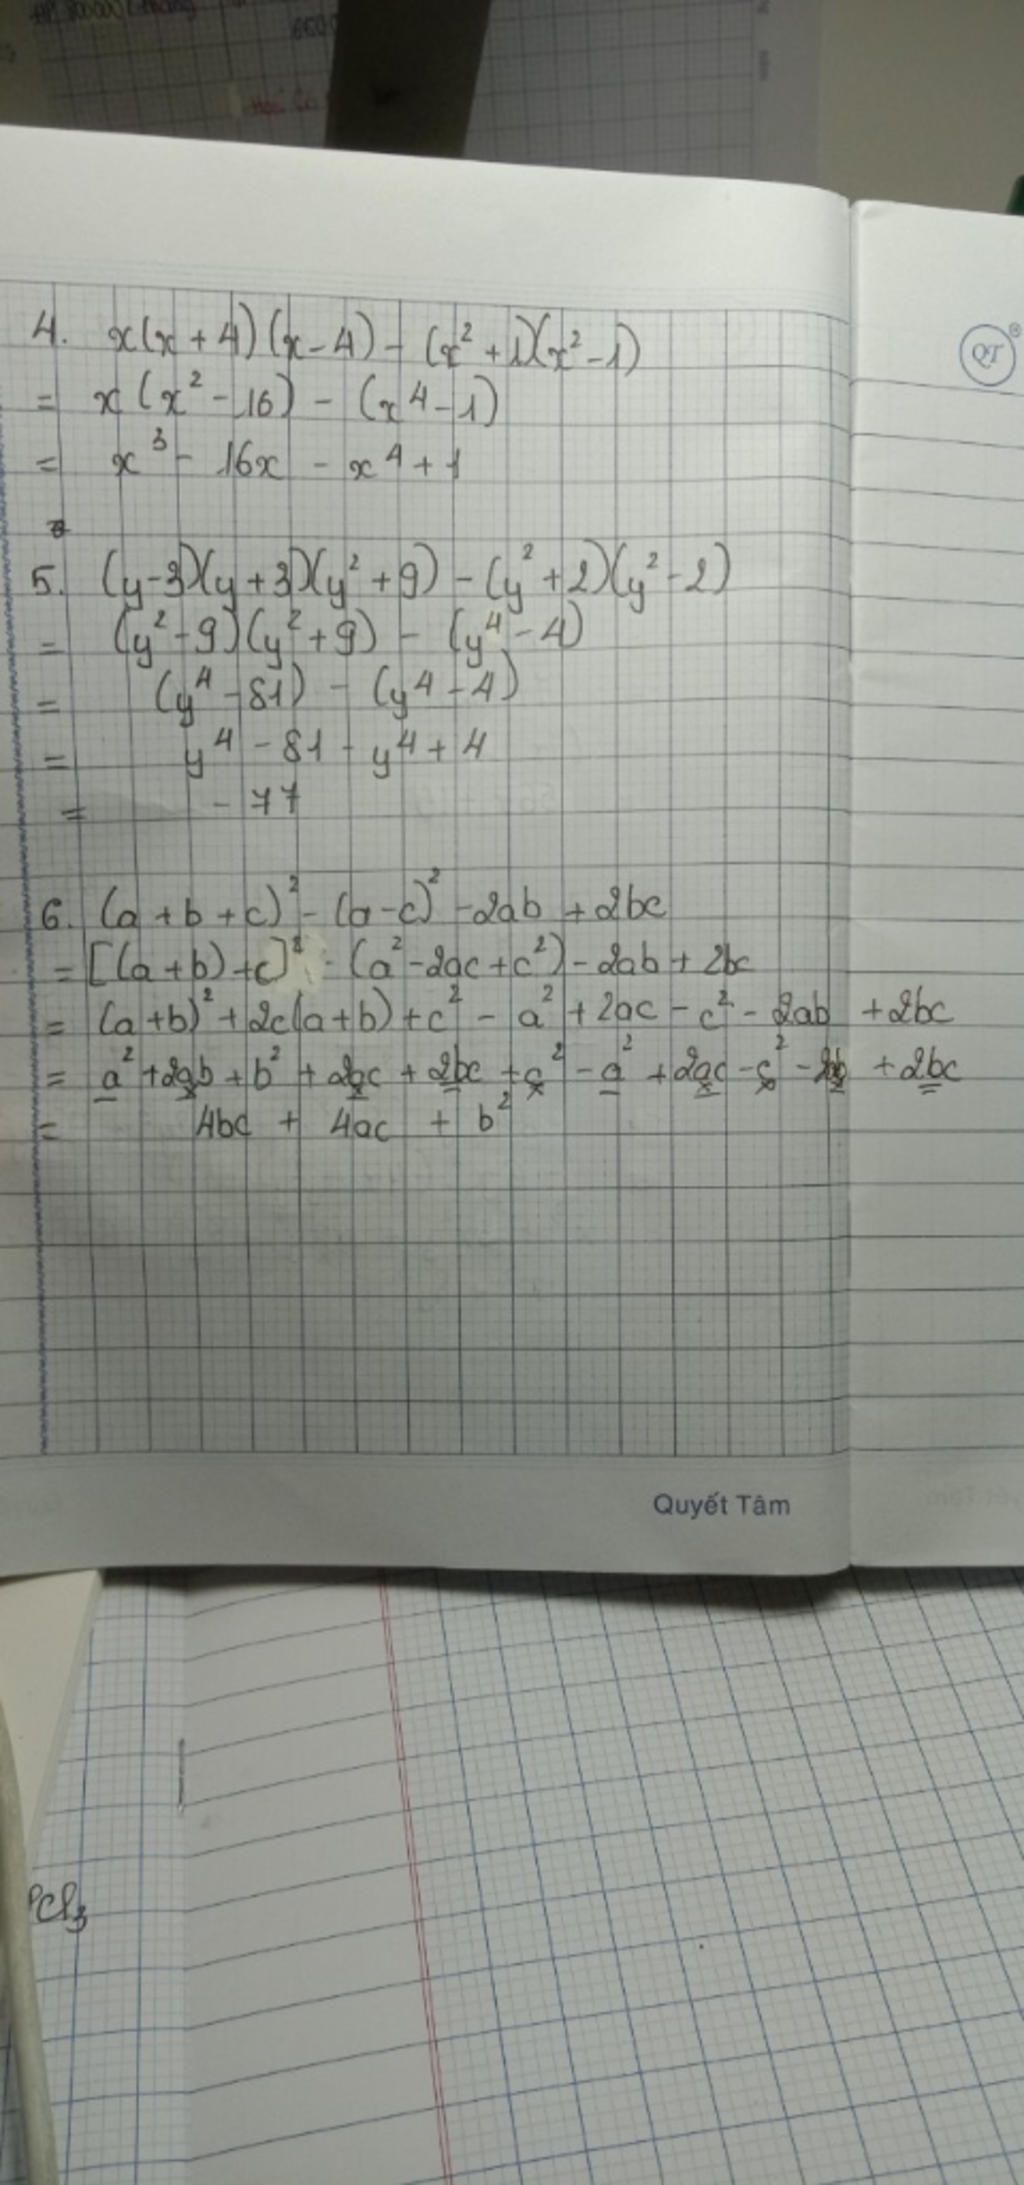 4. x(x+4)(x-4) - (x²+1)(x²-1)
= x(x²-16) - (x⁴-1)
= x³ - 16x - x⁴ + 1
5. (y-3)(y+3)(y²+9) - (y²+2)(y²-2)
= (y²-9)(y²+9) - (y⁴-4)
= (y⁴-81) - (y⁴-4)
= y⁴ - 81 - y⁴ + 4
= -77
6. (a+b+c)² - (a-c)² - 2ab + 2bc
= [(a+b)+c]² - (a²-2ac+c²) - 2ab + 2bc
= (a+b)² + 2c(a+b) + c² - a² + 2ac - c² - 2ab + 2bc
= a² + 2ab + b² + 2ac + 2bc + c² - a² + 2ac - c² - 2ab + 2bc
= 4bc + 4ac + b²
QT
Quyết Tâm
PCl₃